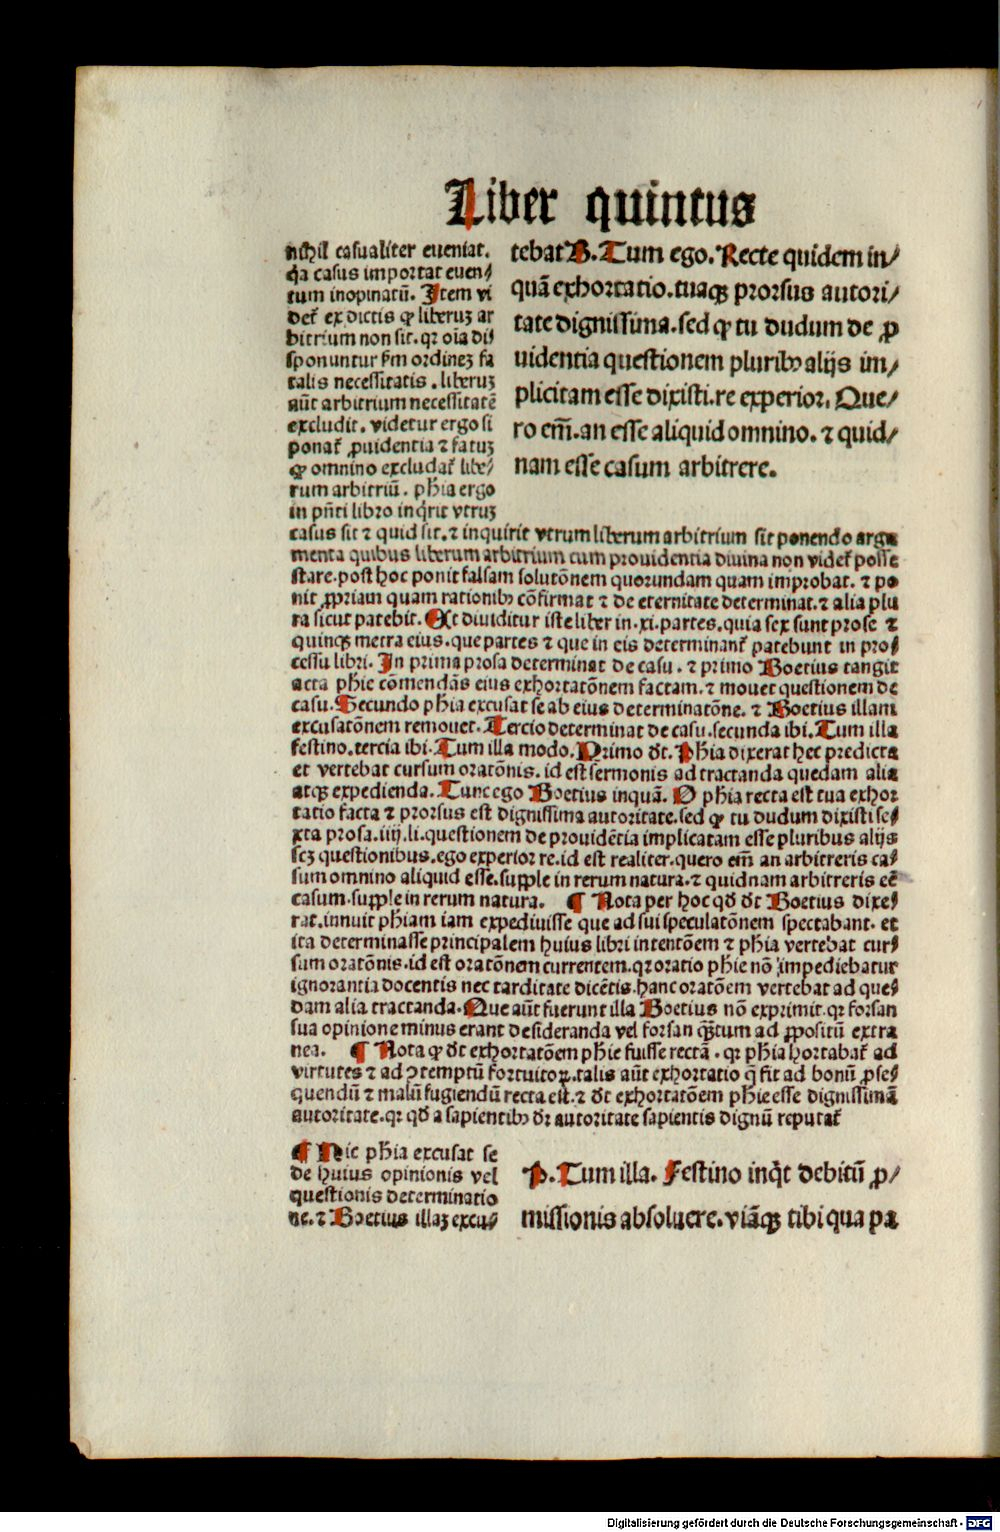 Liber quintus
nichil casualiter eueniat.
q̃a casus importat euen⸗
tum inopinatũ. Item vi
det̃ ex dictis ꝙ liberuʒ ar
bitrium non sit. qꝛ oĩa di⸗
sponuntur ẜm ordineʒ fa
talis necessitatis . liberuʒ
aũt arbitrium necessitatẽ
excludit. videtur ergo si
ponat̃ ꝓuidentia ⁊ fatuʒ
ꝙ omnino excludat̃ libe⸗
rum arbitriũ. pħia ergo
in pñti libro inq̃rit vtruʒ
tebat B. Tum ego. Recte quidem in⸗
quã exhortatio. tuaqꝫ prorsus autori⸗
tate dignissima. sed ꝙ tu dudum de ꝓ
uidentia questionem pluribꝰ alijs im⸗
plicitam esse dixisti. re experior. Que⸗
ro em̃. an esse aliquid omnino. ⁊ quid⸗
nam esse casum arbitrere.
casus sit ⁊ quid sit. ⁊ inquirit vtrum liberum arbitrium sit ponendo argu
menta quibus liberum arbitrium cum prouidentia diuina non videt̃ posse
stare. post hoc ponit falsam solutõnem quorundam quam improbat. ⁊ po
nit ꝓpriam quam rationibꝰ cõfirmat ⁊ de eternitate determinat. ⁊ alia plu
ra sicut patebit. Et diuiditur iste liber in .xi. partes. quia sex sunt prose ⁊
quinqꝫ metra eius. que partes ⁊ que in eis determinant̃ patebunt in pro⸗
cessu libri. In prima prosa determinat de casu . ⁊ primo Boetius tangit
acta pħie cõmendãs eius exhortatõnem factam. ⁊ mouet questionem de
casu. Secundo pħia excusat se ab eius determinatõne. ⁊ Boetius illam
excusatõnem remouet. Tercio determinat de casu. secunda ibi. Tum illa
festino. tercia ibi. Tum illa modo. Primo dt. Pħia dixerat hec predicta
et vertebat cursum oratõnis. id est sermonis ad tractanda quedam alia
atqꝫ expedienda. Tunc ego Boetius inquã. O pħia recta est tua exhor
tatio facta ⁊ prorsus est dignissima autoritate. sed ꝙ tu dudum dixisti se⸗
xta prosa. iiij. li. questionem de prouidẽtia implicatam esse pluribus alijs
scʒ questionibus. ego experior re. id est realiter. quero em̃ an arbitreris ca⸗
sum omnino aliquid esse. supple in rerum natura. ⁊ quidnam arbitreris eẽ
casum. supple in rerum natura. ¶ Nota per hoc qd̃ dt Boetius dixe⸗
rat. innuit pħiam iam expediuisse que ad sui speculatõnem spectabant. et
ita determinasse principalem huius libri intentõem ⁊ pħia vertebat cur⸗
sum oratõnis. id est oratõnem currentem. qꝛ oratio pħie nõ impediebatur
ignorantia docentis nec tarditate dicẽtis. hanc oratõem vertebat ad que⸗
dam alia tractanda. Que aũt fuerunt illa Boetius nõ exprimit. qꝛ forsan
sua opinione minus erant desideranda vel forsan qꝫtum ad ꝓpositũ extra
nea. ¶ Nota ꝙ dt exhortatõem pħie fuisse rectã . qꝛ pħia hortabat̃ ad
virtutes ⁊ ad ↄtemptũ fortuitoꝝ. talis aũt exhortatio q̃ fit ad bonũ ꝓse⸗
quendũ ⁊ malũ fugiendũ recta est. ⁊ dt exhortatõem pħie esse dignissimã
autoritate. qꝛ qd̃ a sapientibꝰ dr̃ autoritate sapientis dignũ reputat̃
¶ Hic pħia excusat se
de huius opinionis vel
questionis determinatio
ne. ⁊ Boetius illaʒ excu⸗
P. Tum illa. Festino inq̃t debitũ ꝓ⸗
missionis absoluere. viãqꝫ tibi qua pa
Digitalisierung gefördert durch die Deutsche Forschungsgemeinschaft - DFG